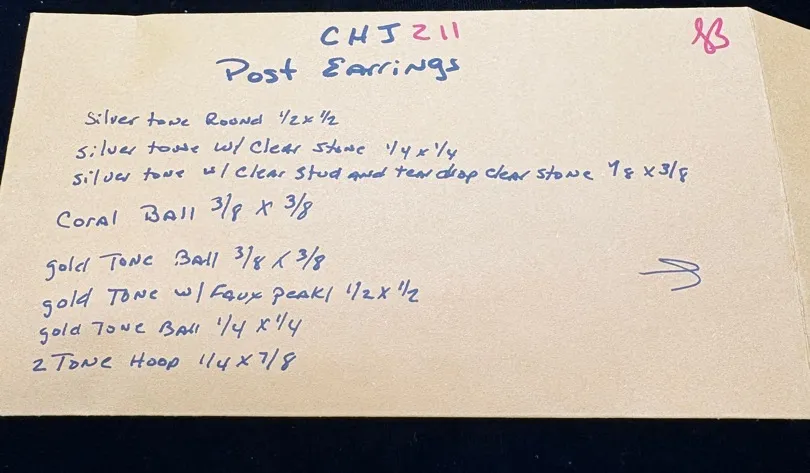 CHJ 211
Post Earrings
Silver tone Round 1/2 x 1/2
silver tone w/ clear stone 1/4 x 1/4
silver tone w/ clear stud and tear drop clear stone 7/8 x 3/8
Coral Ball 3/8 x 3/8
gold Tone Ball 3/8 x 3/8
gold Tone w/ Faux pearl 1/2 x 1/2
gold Tone Ball 1/4 x 1/4
2 Tone Hoop 1/4 x 7/8